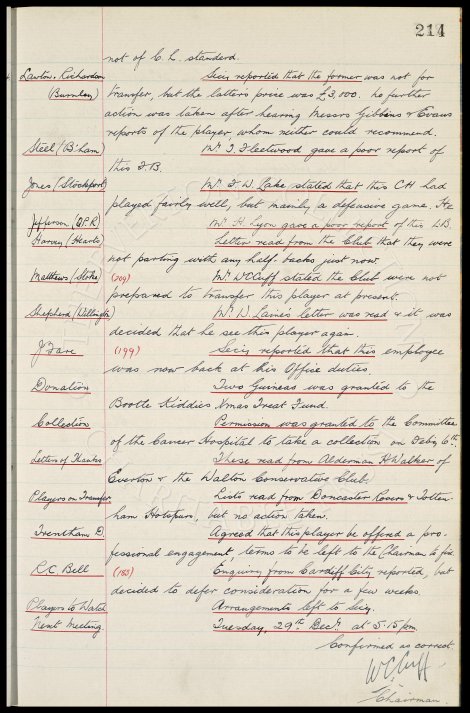 214
not of C. L. standard.
Lawton. Richardson Secy reported that the former was not for
(Burnley) transfer, but the latters price was £3,000. No further
action was taken after hearing Messrs Gibbins & Evans
reports of the player, whom neither could recommend.
Steel (B'ham) Mr. J. Fleetwood gave a poor report of
this F.B.
Jones (Stockport) Mr. F. W. Lake stated that this C H had
played fairly well, but mainly, a defensive game. He
Jefferson (Q.P.R) Mr H. Lyon gave a poor report of this L.B.
Harvey (Hearts) Letter read from the Club that they were
not parting with any half. backs just now.
Matthews (Stoke) (209) Mr. W C Cuff stated the Club were not
prepared to transfer this player at present.
Shepherd (Wellington) Mr. W Laine's letter was read & it was
decided that he see this player again.
J. Fare (199) Secy reported that this employee
was now back at his Office duties.
Donation Two Guineas was granted to the
Bootle Kiddies Xmas Treat Fund.
Collection Permission was granted to the Committee
of the Cancer Hospital to take a collection on Feby 6th.
Letters of Thanks These read from Alderman H Walker of
Everton & the Walton Conservative Club.
Players on Transfer Lists read from Doncaster Rovers & Totten-
ham Hotspurs, but no action taken.
Trentham D. Agreed that this player be offered a pro-
fessional engagement, terms to be left to the Chairman to fix.
R.C. Bell (183) Enquiry from Cardiff City reported, but
decided to defer consideration for a few weeks
Players to Watch Arrangements left to Secy.
Next Meeting Tuesday, 29th Decr at 5.15 pm.
Confirmed as correct.
W C Cuff
Chairman.